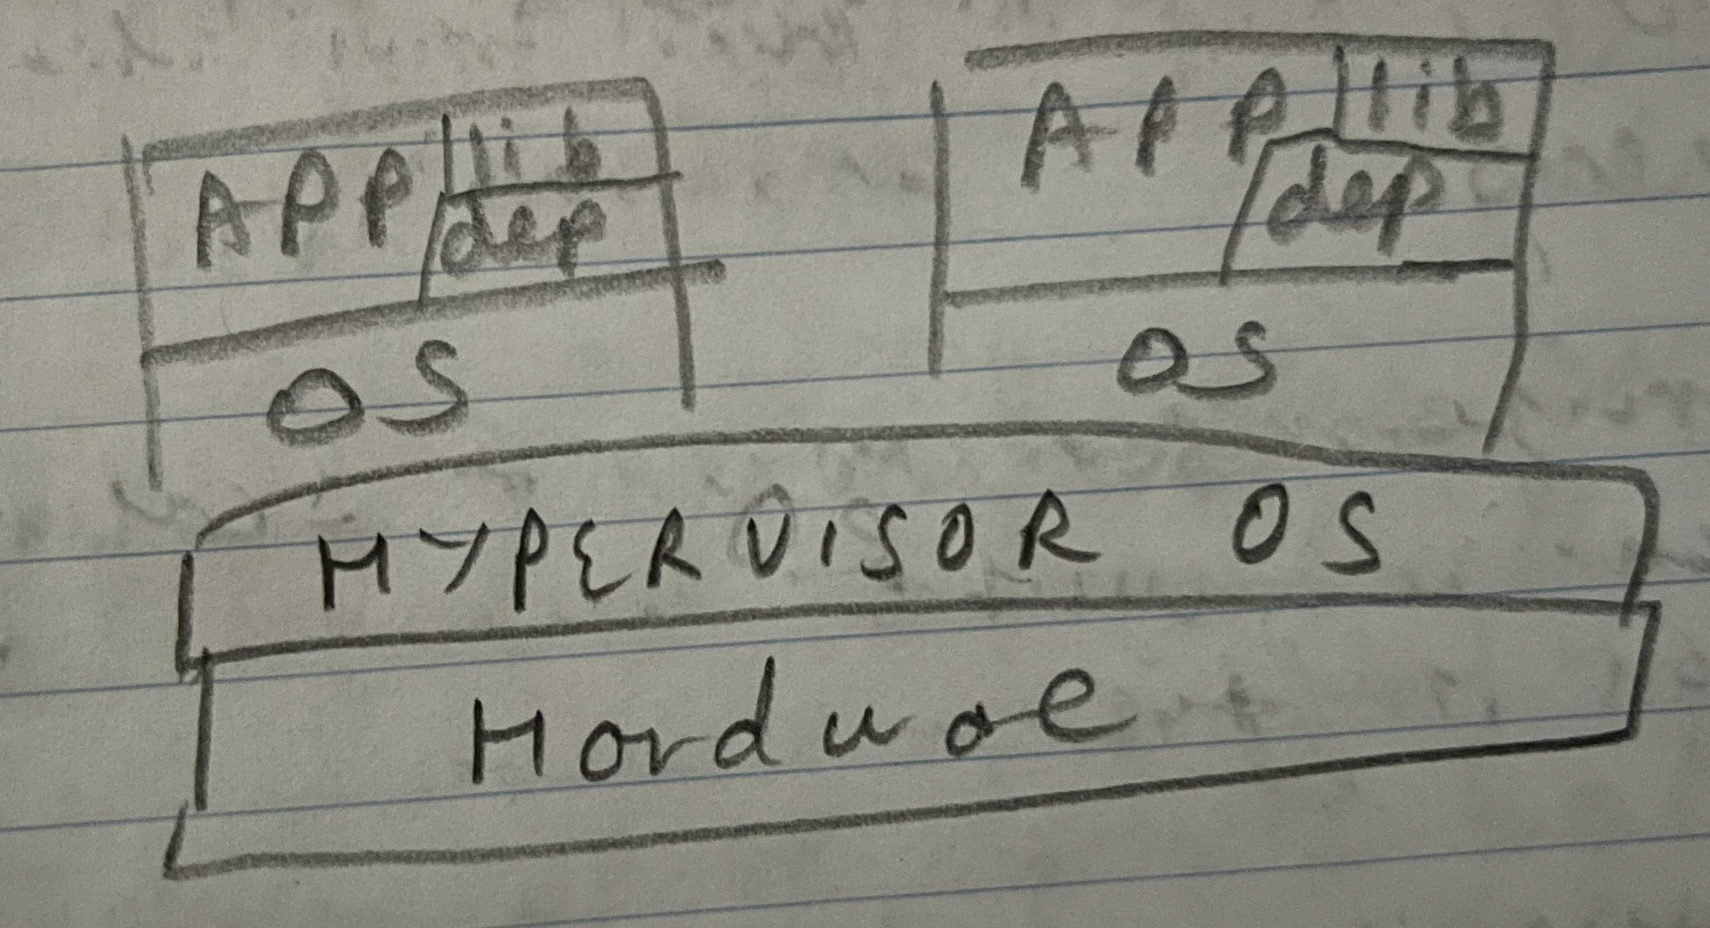 APP lib
dep
OS
APP lib
dep
OS
HYPERVISOR OS
Hardwae